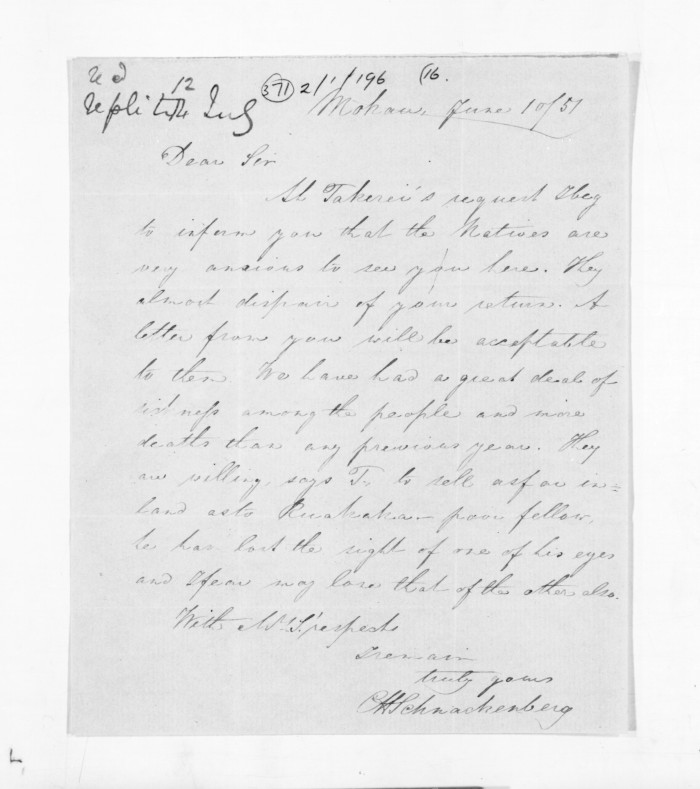 12
371 2/1/196 16.
Mokau, June 10/51
Dear Sir
At Takerei's request I beg
to inform you that the Natives are
very anxious to see you here. They
almost dispair of your return. A
letter from you will be acceptable
to them. We have had a great deal of
sickness among the people and more
deaths than any previous year. They
are willing, says T. to sell as far in=
land as to Ruakaka – poor fellow,
he has lost the sight of one of his eyes
and I fear may lose that of the other also.
With Mrs. S.' respects
I remain
truly yours
CHSchnackenberg